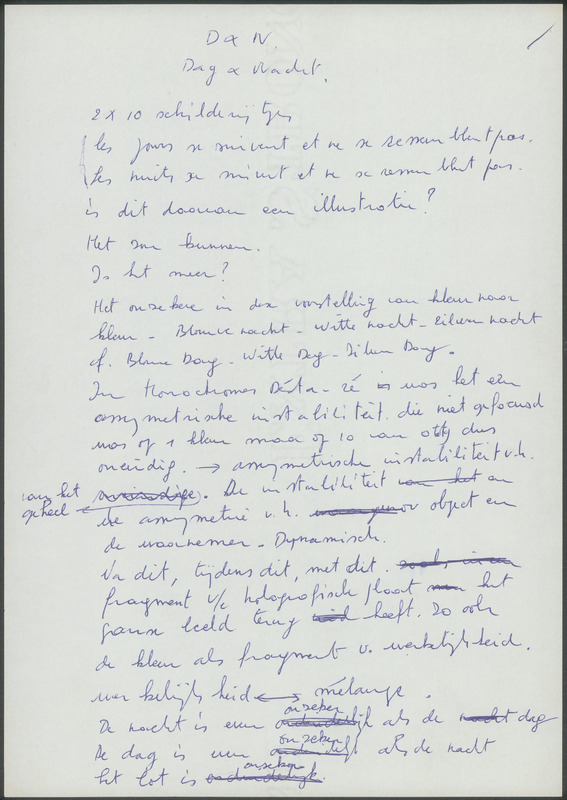 D & IV.
Dag & Nacht.
2 x 10 schilderijtjes
Les jours se suivent et ne se ressemblent pas.
Les nuits se suivent et ne se ressemblent pas.
is dit daarvan een illustratie?
Het zou kunnen.
Is het meer?
Het onzekere in de voorstelling van kleur naar
kleur - Blauwe nacht - Witte nacht - Zilveren nacht
of Blauwe Dag - Witte Dag - Zilveren Dag.
In Monochromes was het een
assymetrische instabiliteit. die niet gefocused
was op 1 kleur maar op 10 van dus
oneindig. → assymetrische instabiliteit v.h.
van het
geheel
oneindige. De instabiliteit van het en
de assymetrie v.h. object en
de waarnemer - Dynamisch.
Na dit, tijdens dit, met dit. zoals in een
fragment v/e holografisch plaat het
ganse beeld terug heeft. Zo ook
de kleur als fragment v. werkelijkheid.
werkelijkheid ↔ mélange.
onzeker
De nacht is even als de nacht dag
onzeker
De dag is even als de nacht
onzeker
het lot is